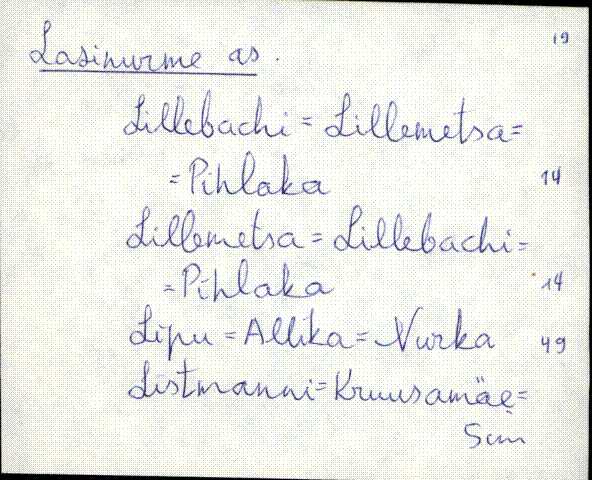 19
Lasinurme as.
Lillebachi = Lillemetsa =
= Pihlaka 14
Lillemetsa = Lillebachi =
= Pihlaka 14
Lipu = Allika = Nurka 49
Listmanni = Kruusamäe =